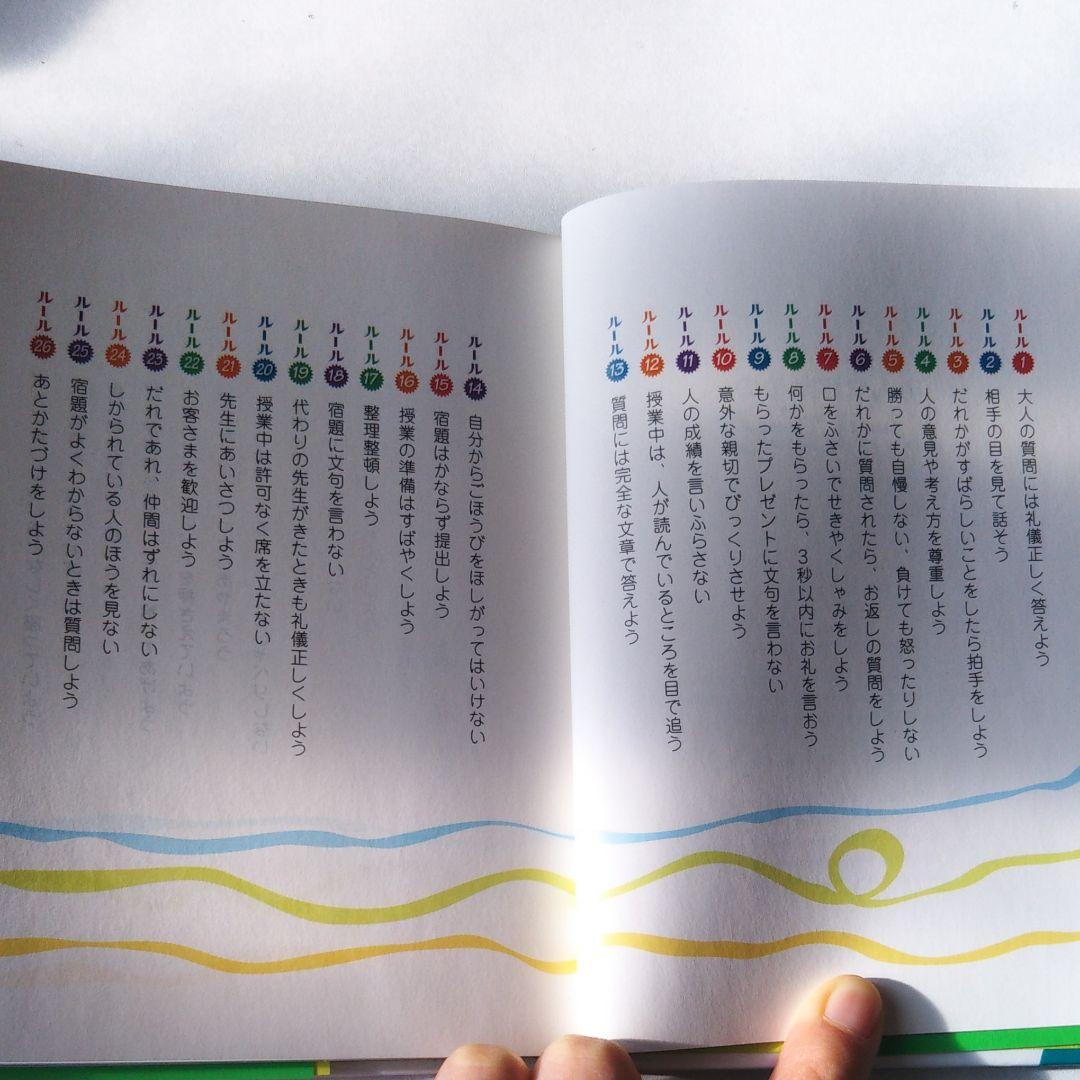 ルール1 大人の質問には礼儀正しく答えよう
ルール2 相手の目を見て話そう
ルール3 だれかがすばらしいことをしたら拍手をしよう
ルール4 人の意見や考え方を尊重しよう
ルール5 勝っても自慢しない、負けても怒ったりしない
ルール6 だれかに質問されたら、お返しの質問をしよう
ルール7 口をふさいでせきやくしゃみをしよう
ルール8 何かをもらったら、3秒以内にお礼を言おう
ルール9 もらったプレゼントに文句を言わない
ルール10 意外な親切でびっくりさせよう
ルール11 人の成績を言いふらさない
ルール12 授業中は、人が読んでいるところを目で追う
ルール13 質問には完全な文章で答えよう
ルール14 自分からごほうびをほしがってはいけない
ルール15 宿題はかならず提出しよう
ルール16 授業の準備はすばやくしよう
ルール17 整理整頓しよう
ルール18 宿題に文句を言わない
ルール19 代わりの先生がきたときも礼儀正しくしよう
ルール20 授業中は許可なく席を立たない
ルール21 先生にあいさつしよう
ルール22 お客さまを歓迎しよう
ルール23 だれであれ、仲間はずれにしない
ルール24 しかられている人のほうを見ない
ルール25 宿題がよくわからないときは質問しよう
ルール26 あとかたづけをしよう